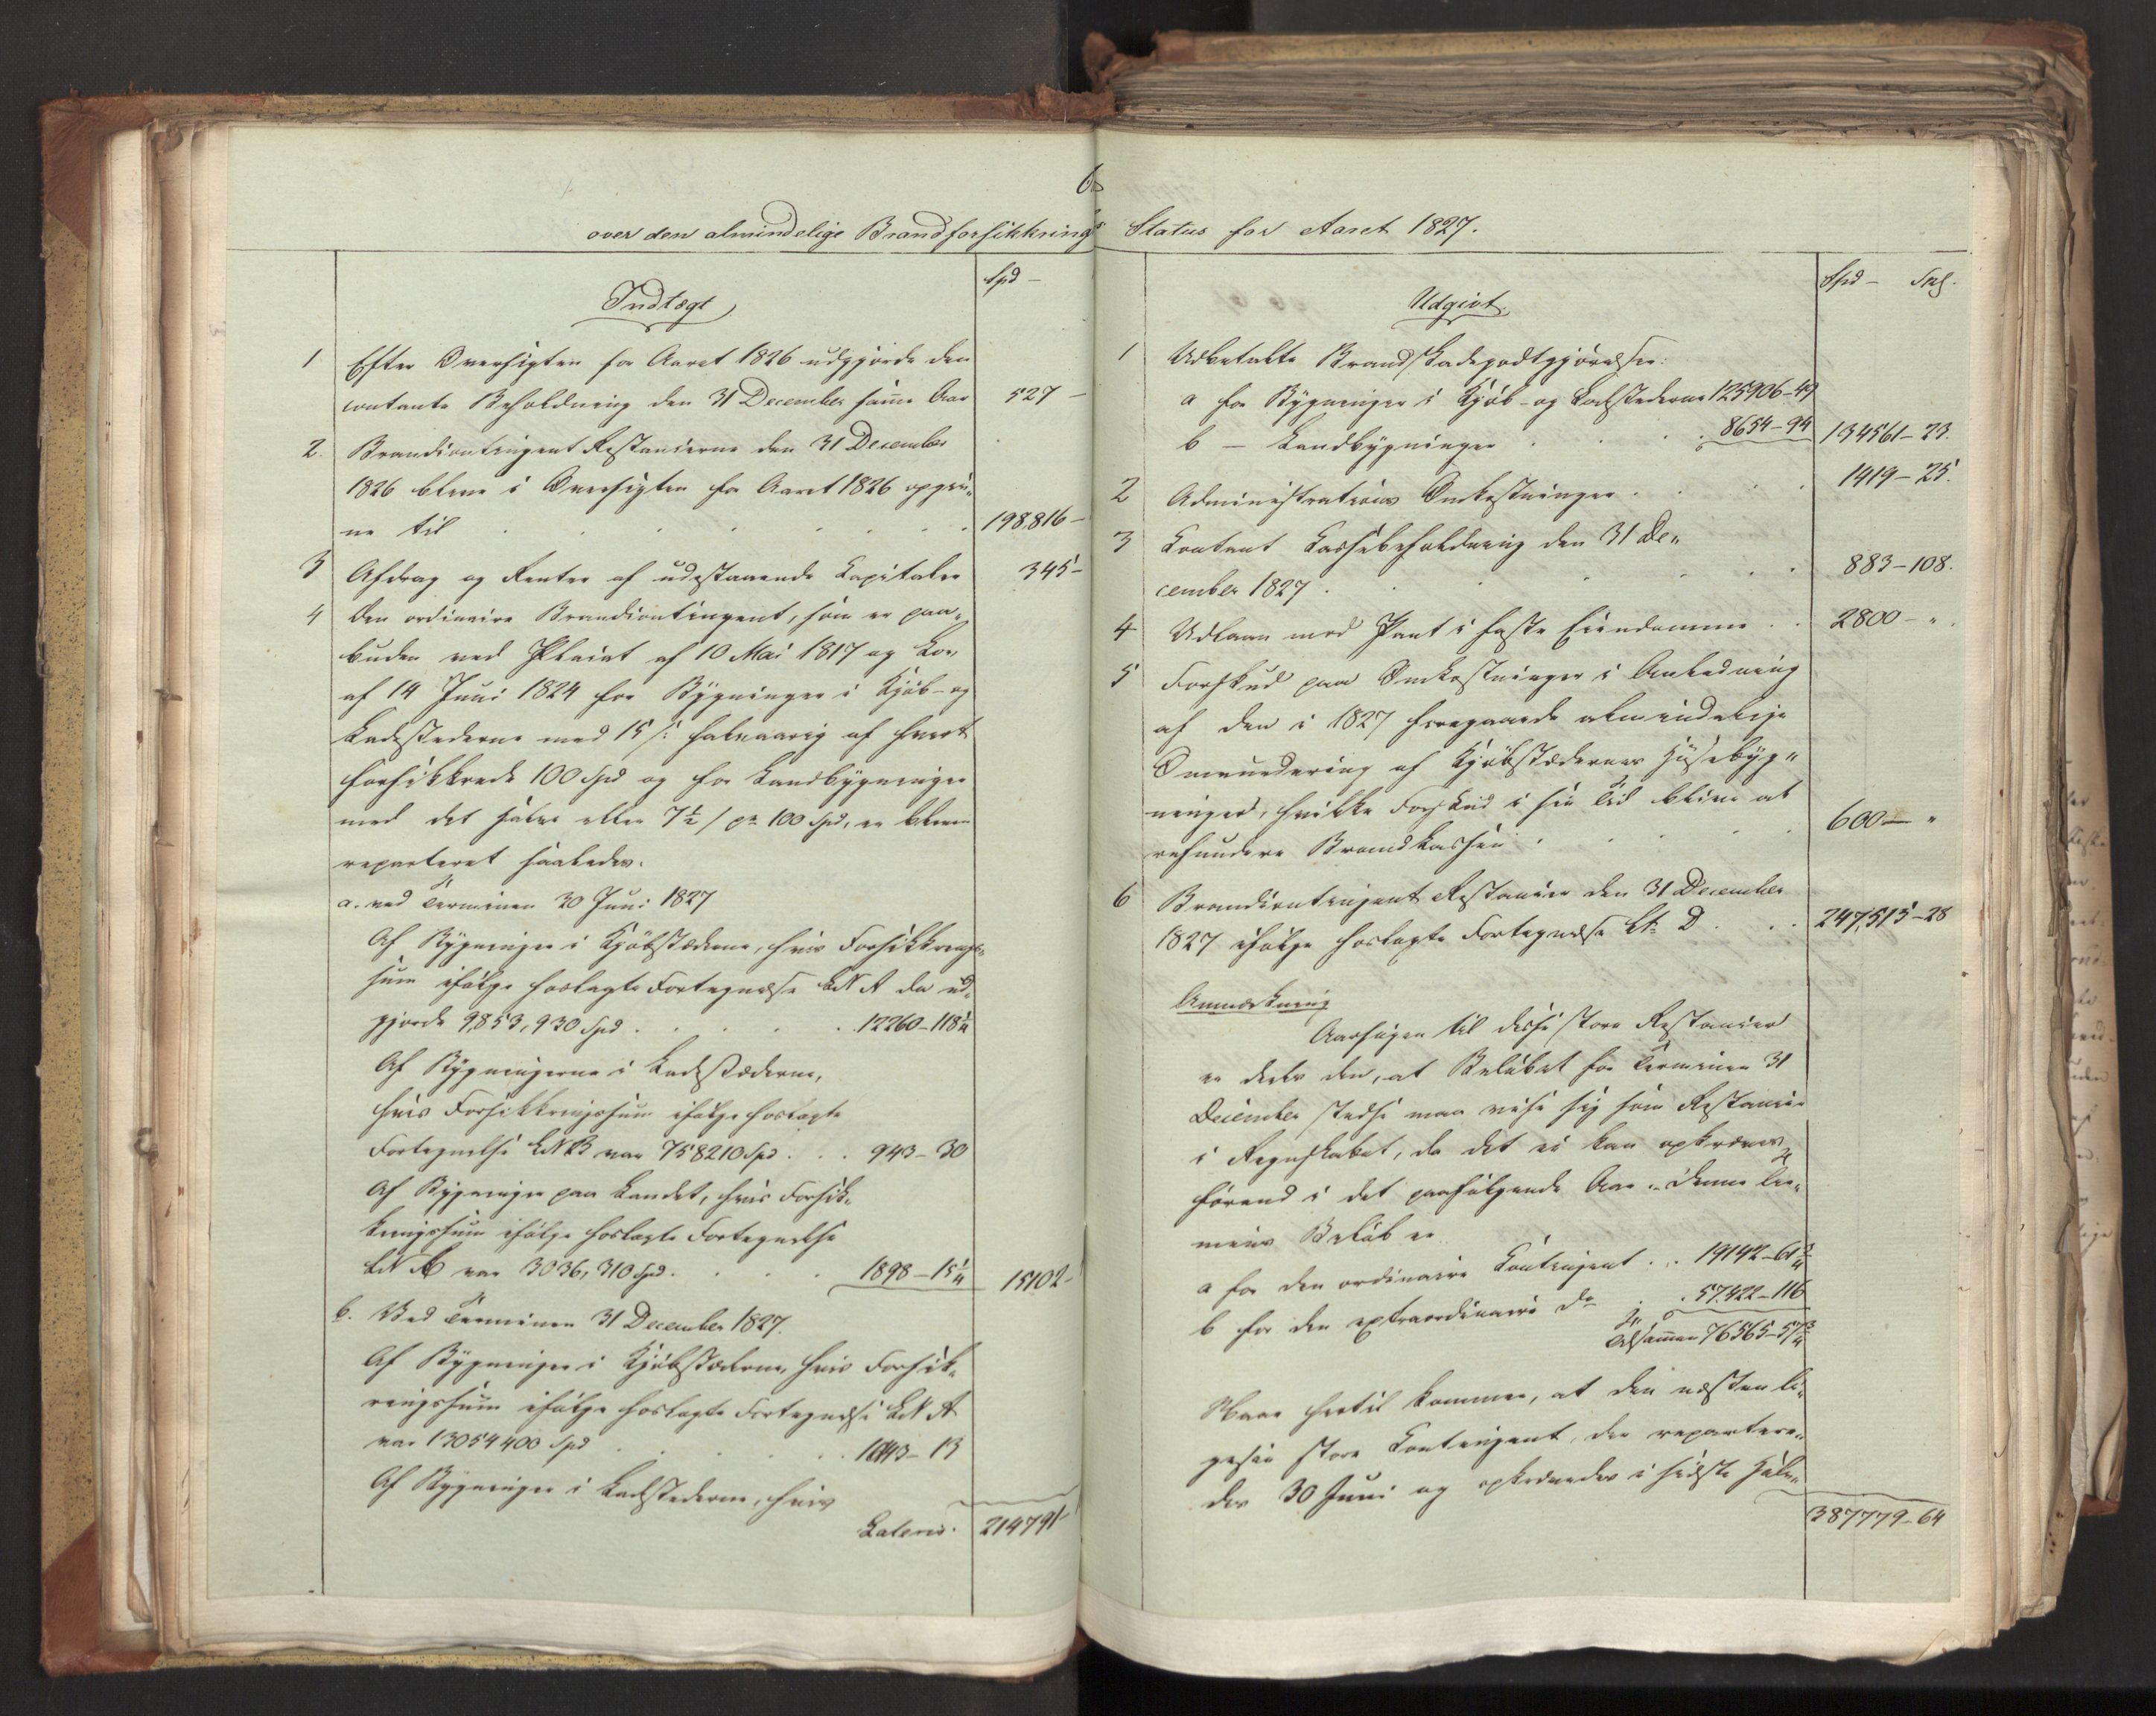 over den almindelige Brandforsikkrings Status for Aaret 1827.
Spd –
Indtægt
1 Efter Oversigten for Aaret 1826 udgjorde den
contante Beholdning den 31 December samme Aar 527 –
2. Brandcontingent Restancerne den 31 December
1826 bleve i Oversigten for Aaret 1826 opgiv„
ne til 198816 –
3 Afdrag og Renter af udestaaende Capitaler 345 –
4 Den ordinaire Brandcontingent, som er paa„
buden ved Placat af 10 Mai 1817 og Lov
af 14 Juni 1824 for Bygninger i Kjøb- og
Ladestederne med 15 s: halvaarig af hvert
forsikkrede 100 Spd og for Landbygninger
med det halve eller 7½ s pr 100 Spd, er bleven
reparteret saaledes.
a. ved Terminen 30 Juni 1827
Af Bygninger i Kjøbstæderne, hvis Forsikkrings„
sum ifølge hoslagte Fortegnelse Lit A da ud„
gjorde 9,853,930 Spd 12260–118¼
Af Bygningerne i Ladestæderne,
hvis Forsikkringssum ifølge hoslagte
Fortegnelse Lit B var 758210 Spd 943–30
Af Bygninger paa Landet, hvis Forsik„
kringssum ifølge hoslagte Fortegnelse
var 3036,310 Spd 1898–15¼ 15102–
b. Ved Terminen 31 December 1827.
Af Bygninger i Kjøbstæderne, hvis Forsik„
ringssum ifølge hoslagte Fortegnelse Lit A
var 13054400 Spd
Af Bygninger i Ladestederne, hvis
Lateris. 214791
Spd – Skl.
Udgivt.
1 Udbetalte Brandskadegodtgjørelser:
a for Bygninger i Kjøb- og Ladestederne 125906–49
b – Landbygninger 8654–94 134561–23.
2 Administrations Omkostninger 1419–25.
3 Contant Cassebeholdning den 31 De„
cember 1827 883–108.
4 Udlaan mod Pant i faste Eiendomme 2800 – „
5 Forskud paa Omkostninger i Anledning
af den i 1827 foregaaede almindelige
Omvurdering af Kjøbstædernes Huusebyg„
ninger, hvilke Forskud i sin Tid blive at
refundere Brandkassen 600 – „
6 Brandcontingent Restancer den 31 December
1827 ifølge hoslagte Fortegnelse Lit D 247,515–28
Anmærkning
Aarsagen til disse store Restancer
er deels den, at Beløbet for Terminen 31
December stedse maa vise sig som Restance
i Regnskabet, da det ei kan opkræves
førend i det paafølgende Aar. Denne Ter„
mins Beløb er
a for den ordinaire Contingent 19142–61¾
b for den extraordinaire do 57422–116
Tilsammen 76565–57¾
Naar hertil kommer, at den næsten li„
gesaa store Contingent, der repartere„
des 30 Juni og opkrævedes i sidste Halv„
387779–64